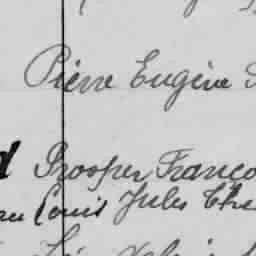 Pierre Eugène
Prosper Franço
Louis Jules Che